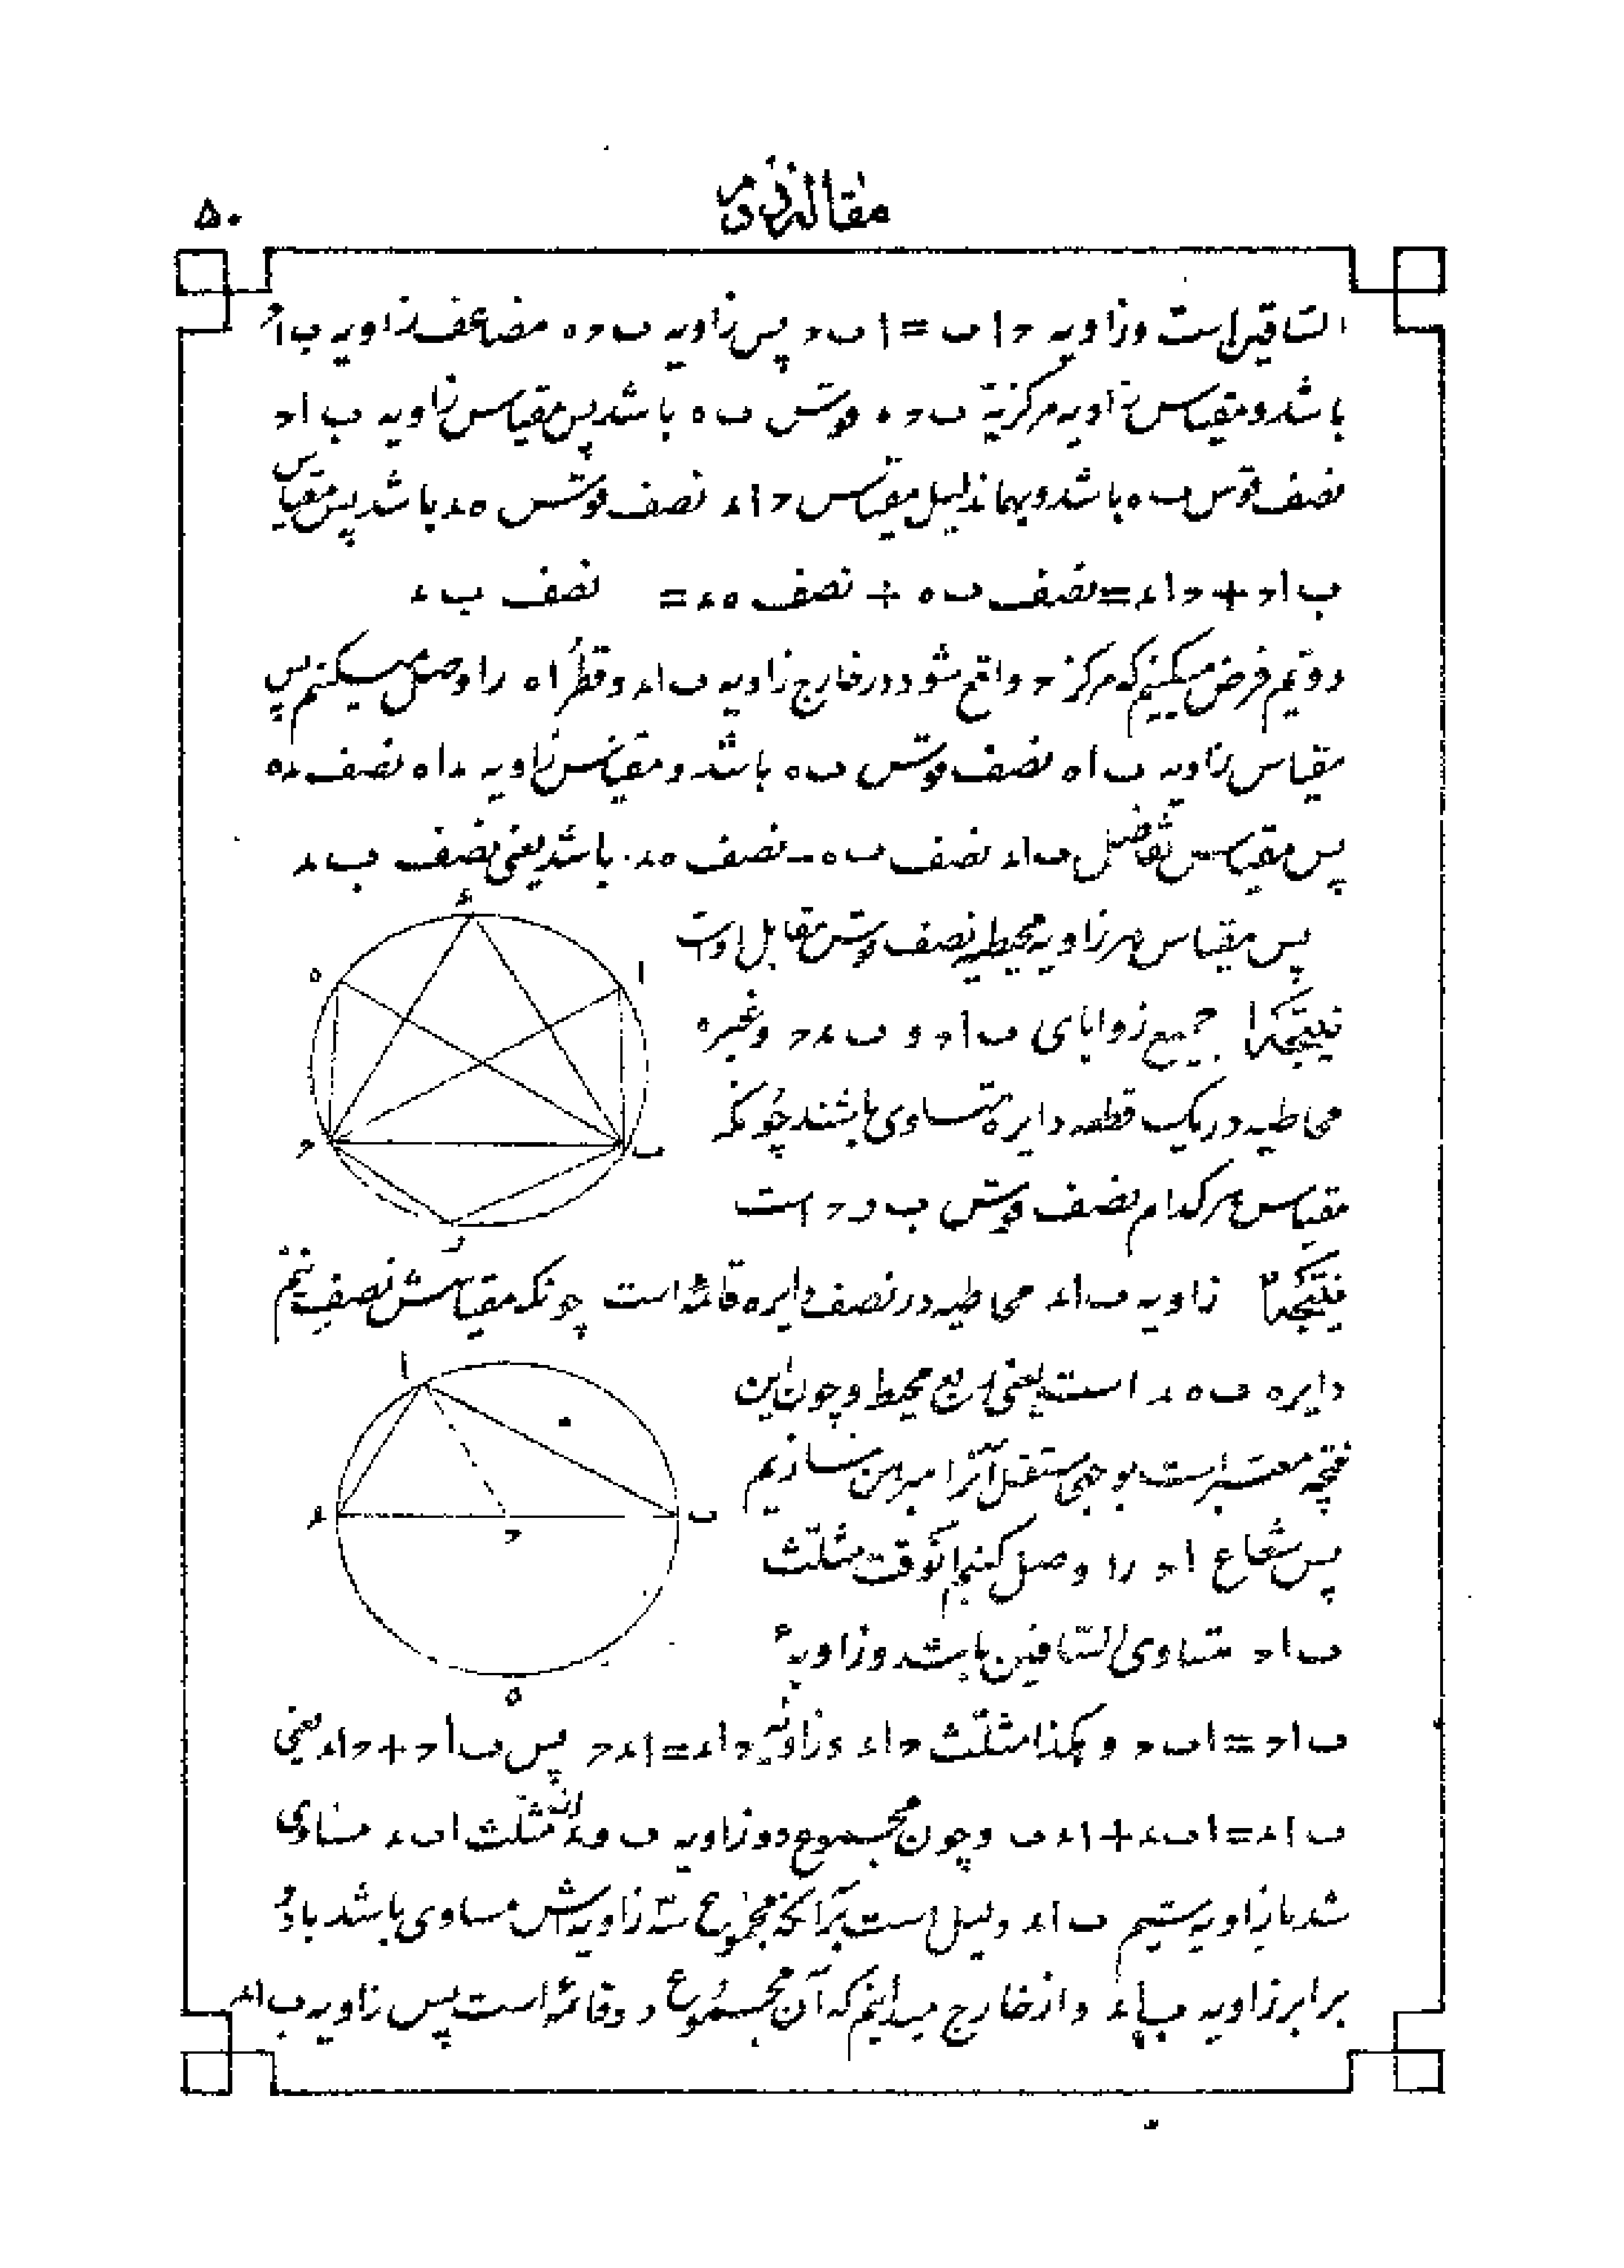 مقاله دویم
۵۰
الساقین است و زاویه حاب = ابح پس زاویه بحه مضاعف زاویه باح
باشد و مقیاس زاویه مرکزیه بحه قوس به باشد پس مقیاس زاویه باح
نصف قوس به باشد و بهمان دلیل مقیاس حاء نصف قوس هء باشد پس مقیاس
باح + حاء = نصف به + نصف هء = نصف بء
دویم فرض میکنیم که مرکز ح واقع شود در خارج زاویه باء و قطر اه را وصل میکنیم پس
مقیاس زاویه باه نصف قوس به باشد و مقیاس زاویه ءاه نصف ءه
پس مقیاس تفاضل باء نصف به - نصف هء باشد یعنی نصف بء
پس مقیاس هر زاویه محیطیه نصف قوس مقابل اوست
نتیجه ۱ جمیع زوایای باح و بءح و غیره
محاطیه در یک قطعه دایره متساوی باشند چونکه
مقیاس هر کدام نصف قوس بوح است
نتیجه ۲ زاویه باء محاطیه در نصف دایره قائمه است چونکه مقیاسش نصف نیم
دایره بهء است یعنی ربع محیط و چون این
نتیجه معتبر است بوجهی مستقل آنرا مبرهن سازیم
پس شعاع اح را وصل کنیم آنوقت مثلث
باح متساوی الساقین باشد و زاویهٔ
باح = ابح و هکذا مثلث حاء و زاویه حاء = اءح پس باح + حاء یعنی
باء = ابء + اءب و چون مجموع دو زاویه ب و ء از مثلث ابء مساوی
شد با زاویه سیم باء دلیل است بر آنکه مجموع سه زاویه‌اش مساوی باشد با دو
برابر زاویه باء و از خارج میدانیم که آن مجموع دو قائمه است پس زاویه باء
ء
ه
ا
ح
ب
و
ا
ء
ب
ح
ه